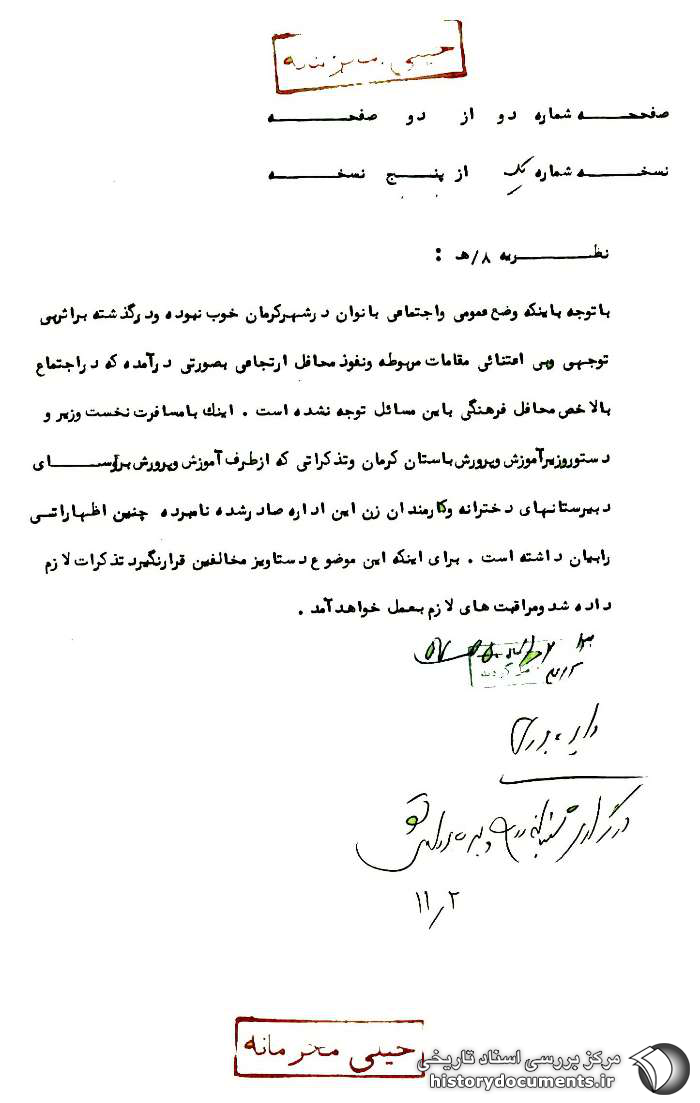 خیلی محرمانه
صفحه شماره دو از دو صفحه
نسخه شماره یک از پنج نسخه
نظریه ۸/هـ :
با توجه باینکه وضع عمومی واجتماعی بانوان در شهرکرمان خوب نبوده ودر گذشته بر اثر بی
توجهی وبی اعتنائی مقامات مربوطه ونفوذ محافل ارتجاعی بصورتی درآمده که در اجتماع
بالاخص محافل فرهنگی باین مسائل توجه نشده است . اینك با مسافرت نخست وزیر و
دستور وزیر آموزش وپرورش باستان کرمان وتذکراتی که از طرف آموزش وپرورش برؤسای
دبیرستانهای دخترانه وکارمندان زن این اداره صادر شده نامبرده چنین اظهاراتی
را بیان داشته است . برای اینکه این موضوع دستاویز مخالفین قرار نگیرد تذکرات لازم
داده شد ومراقبت های لازم بعمل خواهد آمد .
۱۱/۲
خیلی محرمانه
مرکز بررسی اسناد تاریخی
historydocuments.ir